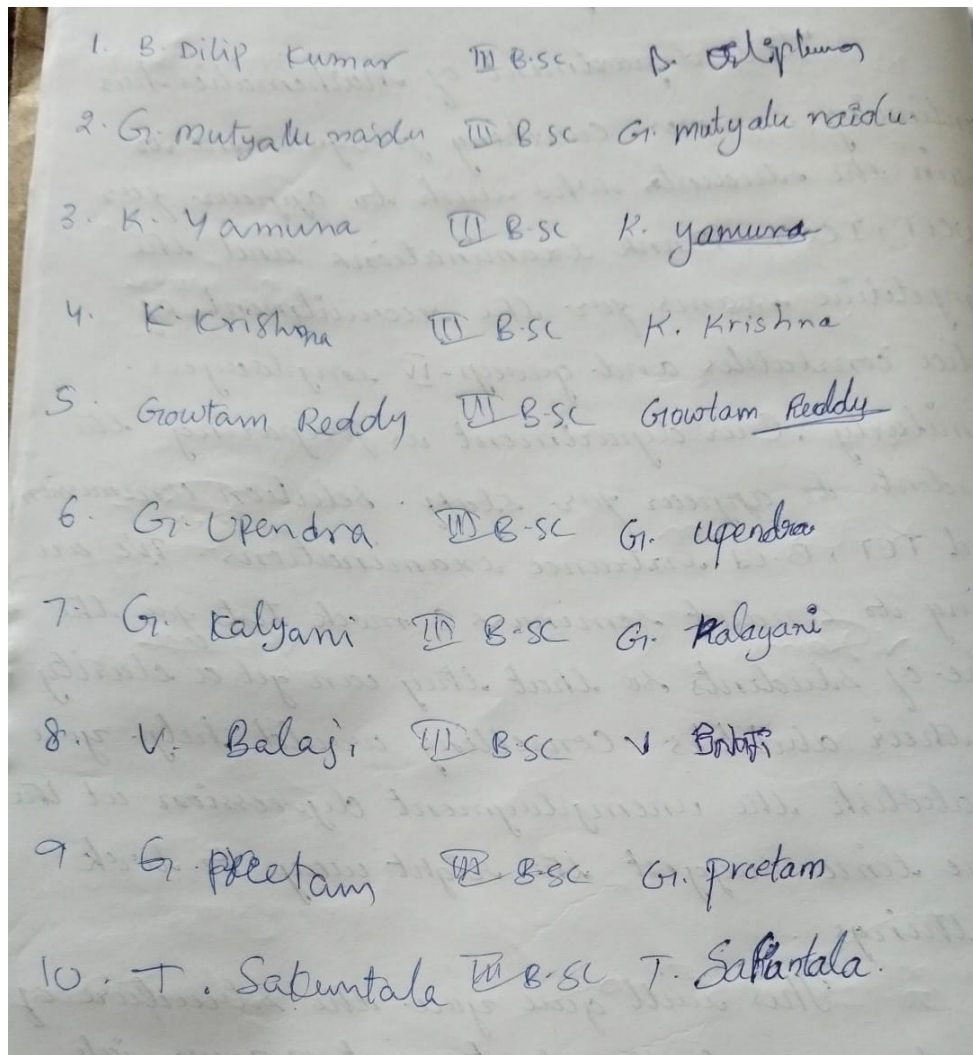 1. B. Dilip Kumar III B.sc B. Dilipkumar
2. G. mutyalu naidu III B.sc G. mutyalu naidu.
3. K. Yamuna III B.sc K. yamuna
4. K. Krishna III B.sc K. Krishna
5. Gowtam Reddy III B.sc Gowtam Reddy
6. G. Upendra III B-sc G. upendra
7. G. Kalyani III B.sc G. Kalayani
8. V. Balaji III B.sc V Balaji
9 G. Preetam III B.sc G. preetam
10. T. Sakuntala III B.sc T. Sakantala.